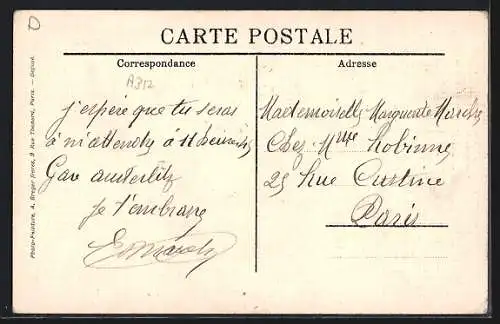 D
CARTE POSTALE
Correspondance
Adresse
A312
j'espère que tu seras
à m'attendre à 11 heures
Gare austerlitz
Je t'embrasse
Mademoiselle Marguerite
Chez Mme Robinne
25 Rue Custine
Paris
Photo-Peinture, A. Breger Frères, 9 Rue Thénard, Paris. —